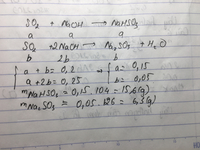 SO₂ + NaOH → NaHSO₃
a a a
SO₂ + 2NaOH → Na₂SO₃ + H₂O
b 2b b
{ a + b = 0,2 => { a = 0,15
a + 2b = 0,25 b = 0,05
mNaHSO₃ = 0,15 . 104 = 15,6 (g)
mNa₂SO₃ = 0,05 . 126 = 6,3 (g)